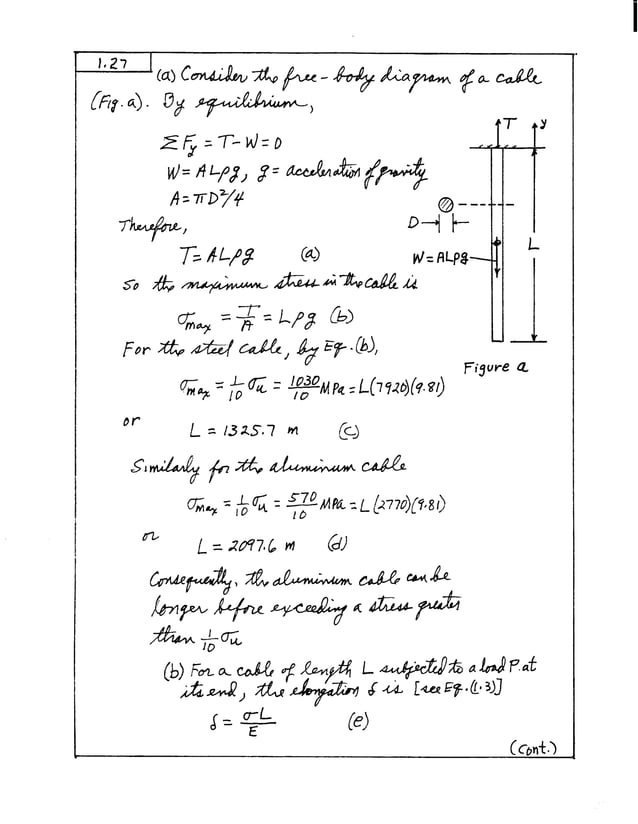 1.27
(a) Consider the free-body diagram of a cable
(Fig. a). By equilibrium,
ΣFy = T-W = 0
W = ALρg, g = acceleration of gravity
A = πD²/4
Therefore,
T = ALρg (a)
So the maximum stress in the cable is
σmax = T/A = Lρg (b)
For the steel cable, by Eq. (b),
σmax = 1/10 σu = 1030/10 MPa = L(7920)(9.81)
or
L = 1325.7 m (c)
Similarly for the aluminum cable
σmax = 1/10 σu = 570/10 MPa = L(2770)(9.81)
or
L = 2097.6 m (d)
Consequently, the aluminum cable can be
longer before exceeding a stress greater
than 1/10 σu
(b) For a cable of length L subjected to a load P at
its end, the elongation δ is [see Eq. (1.3)]
δ = σL/E (e)
(Cont.)
T
y
D
L
W = ALρg
Figure a